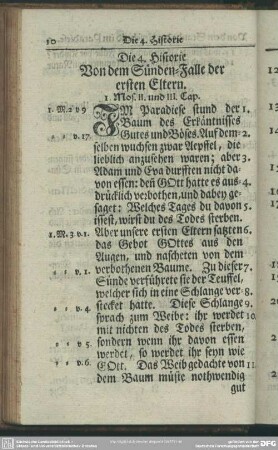 10 Die 4. Historie
Die 4. Historie
Von dem Sünden-Falle der
ersten Eltern.
1. Mos. II. und III. Cap.
1. M. 2 v 9 IM Paradiese stund der 1.
Baum des Erkäntnisses
v. 17. Gutes und Böses. Auf dem 2.
selben wuchsen zwar Aepffel, die
lieblich anzusehen waren; aber 3.
Adam und Eva durfften nicht da-
von essen: deñ GOtt hatte es aus- 4.
drücklich verbothen, und dabey ge-
saget: Welches Tages du davon 5.
issest, wirst du des Todes sterben.
1. M. 3. v. 1. Aber unsere ersten Eltern satzten 6.
das Gebot GOttes aus den
Augen, und nascheten von dem
verbothenen Baume. Zu dieser 7.
v. 1. Sünde verführete sie der Teuffel,
welcher sich in eine Schlange ver- 8.
v. 4. stecket hatte. Diese Schlange 9.
sprach zum Weibe: ihr werdet 10
mit nichten des Todes sterben,
v. 5. sondern wenn ihr davon essen
werdet, so werdet ihr seyn wie
v. 6. GOtt. Das Weib gedachte von 11
dem Baum müste nothwendig
gut